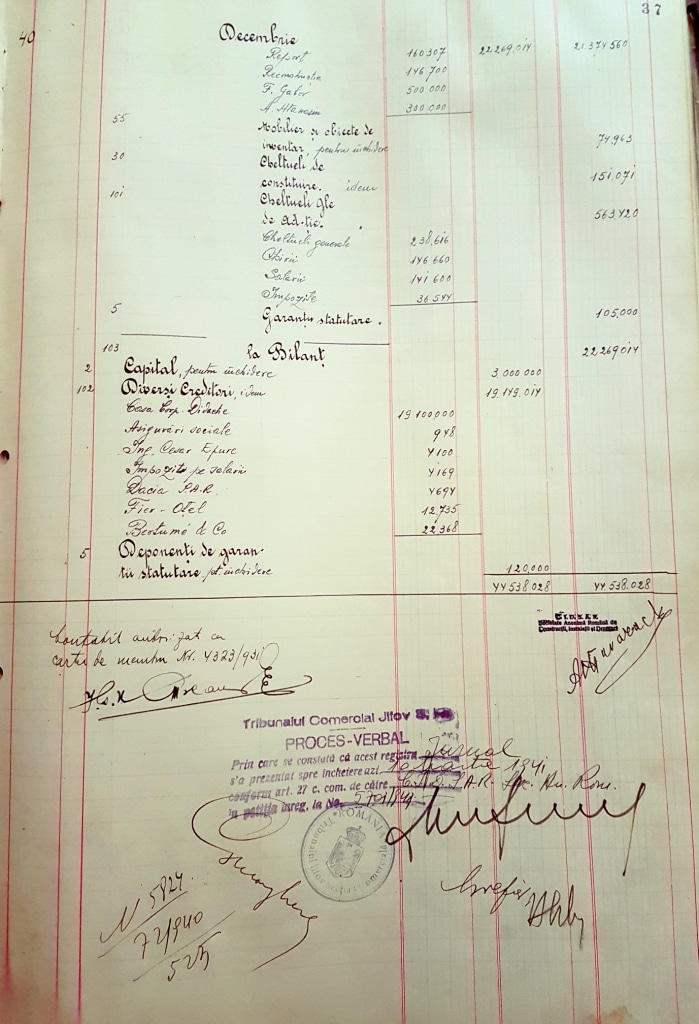 37
40 Decembrie
Report 160.307 22.269.014 21.374.560
Reconstructia 146.700
F. Gabor 500 000
A. Atanasiu 300.000
55 Mobilier și obiecte de
inventar, pentru inchidere 74.963
30 Cheltueli de
constituire, idem 151.071
101 Cheltueli gle
de ad-ție. 563.420
Cheltueli generale 238.616
Chirii 146.660
Salarii 141 600
Impozite 36.544
5 Garanții statutare. 105.000
103 la Bilanț 22.269.014
2 Capital, pentru inchidere 3.000.000
102 Diverși Creditori, idem 19.149.014
Casa Corp. Didactic 19.100.000
Asigurări sociale 948
Ing. Cesar Epure 4100
Impozite pe salarii 4169
Dacia S.A.R. 4694
Fier - Oțel 12.735
Bertumé & Co 22.368
5 Deponenți de garan-
tii statutare pt. inchidere 120.000
44.538.028 44.538.028
Contabil autorizat cu
cartea de membru Nr. 4323/931
Societate Anonimă Română de
Construcții, Instalații și Drumuri
Tribunalul Comercial Ilfov
PROCES-VERBAL
Prin care se constată că acest registru Jurnal
s'a prezentat spre încheiere azi, 16 Martie 1941
conform art. 27 c. com. de către S.A.R.
în petiția înreg. la No.
ROMÂNIA
Grefier
N 5824
72/940
525